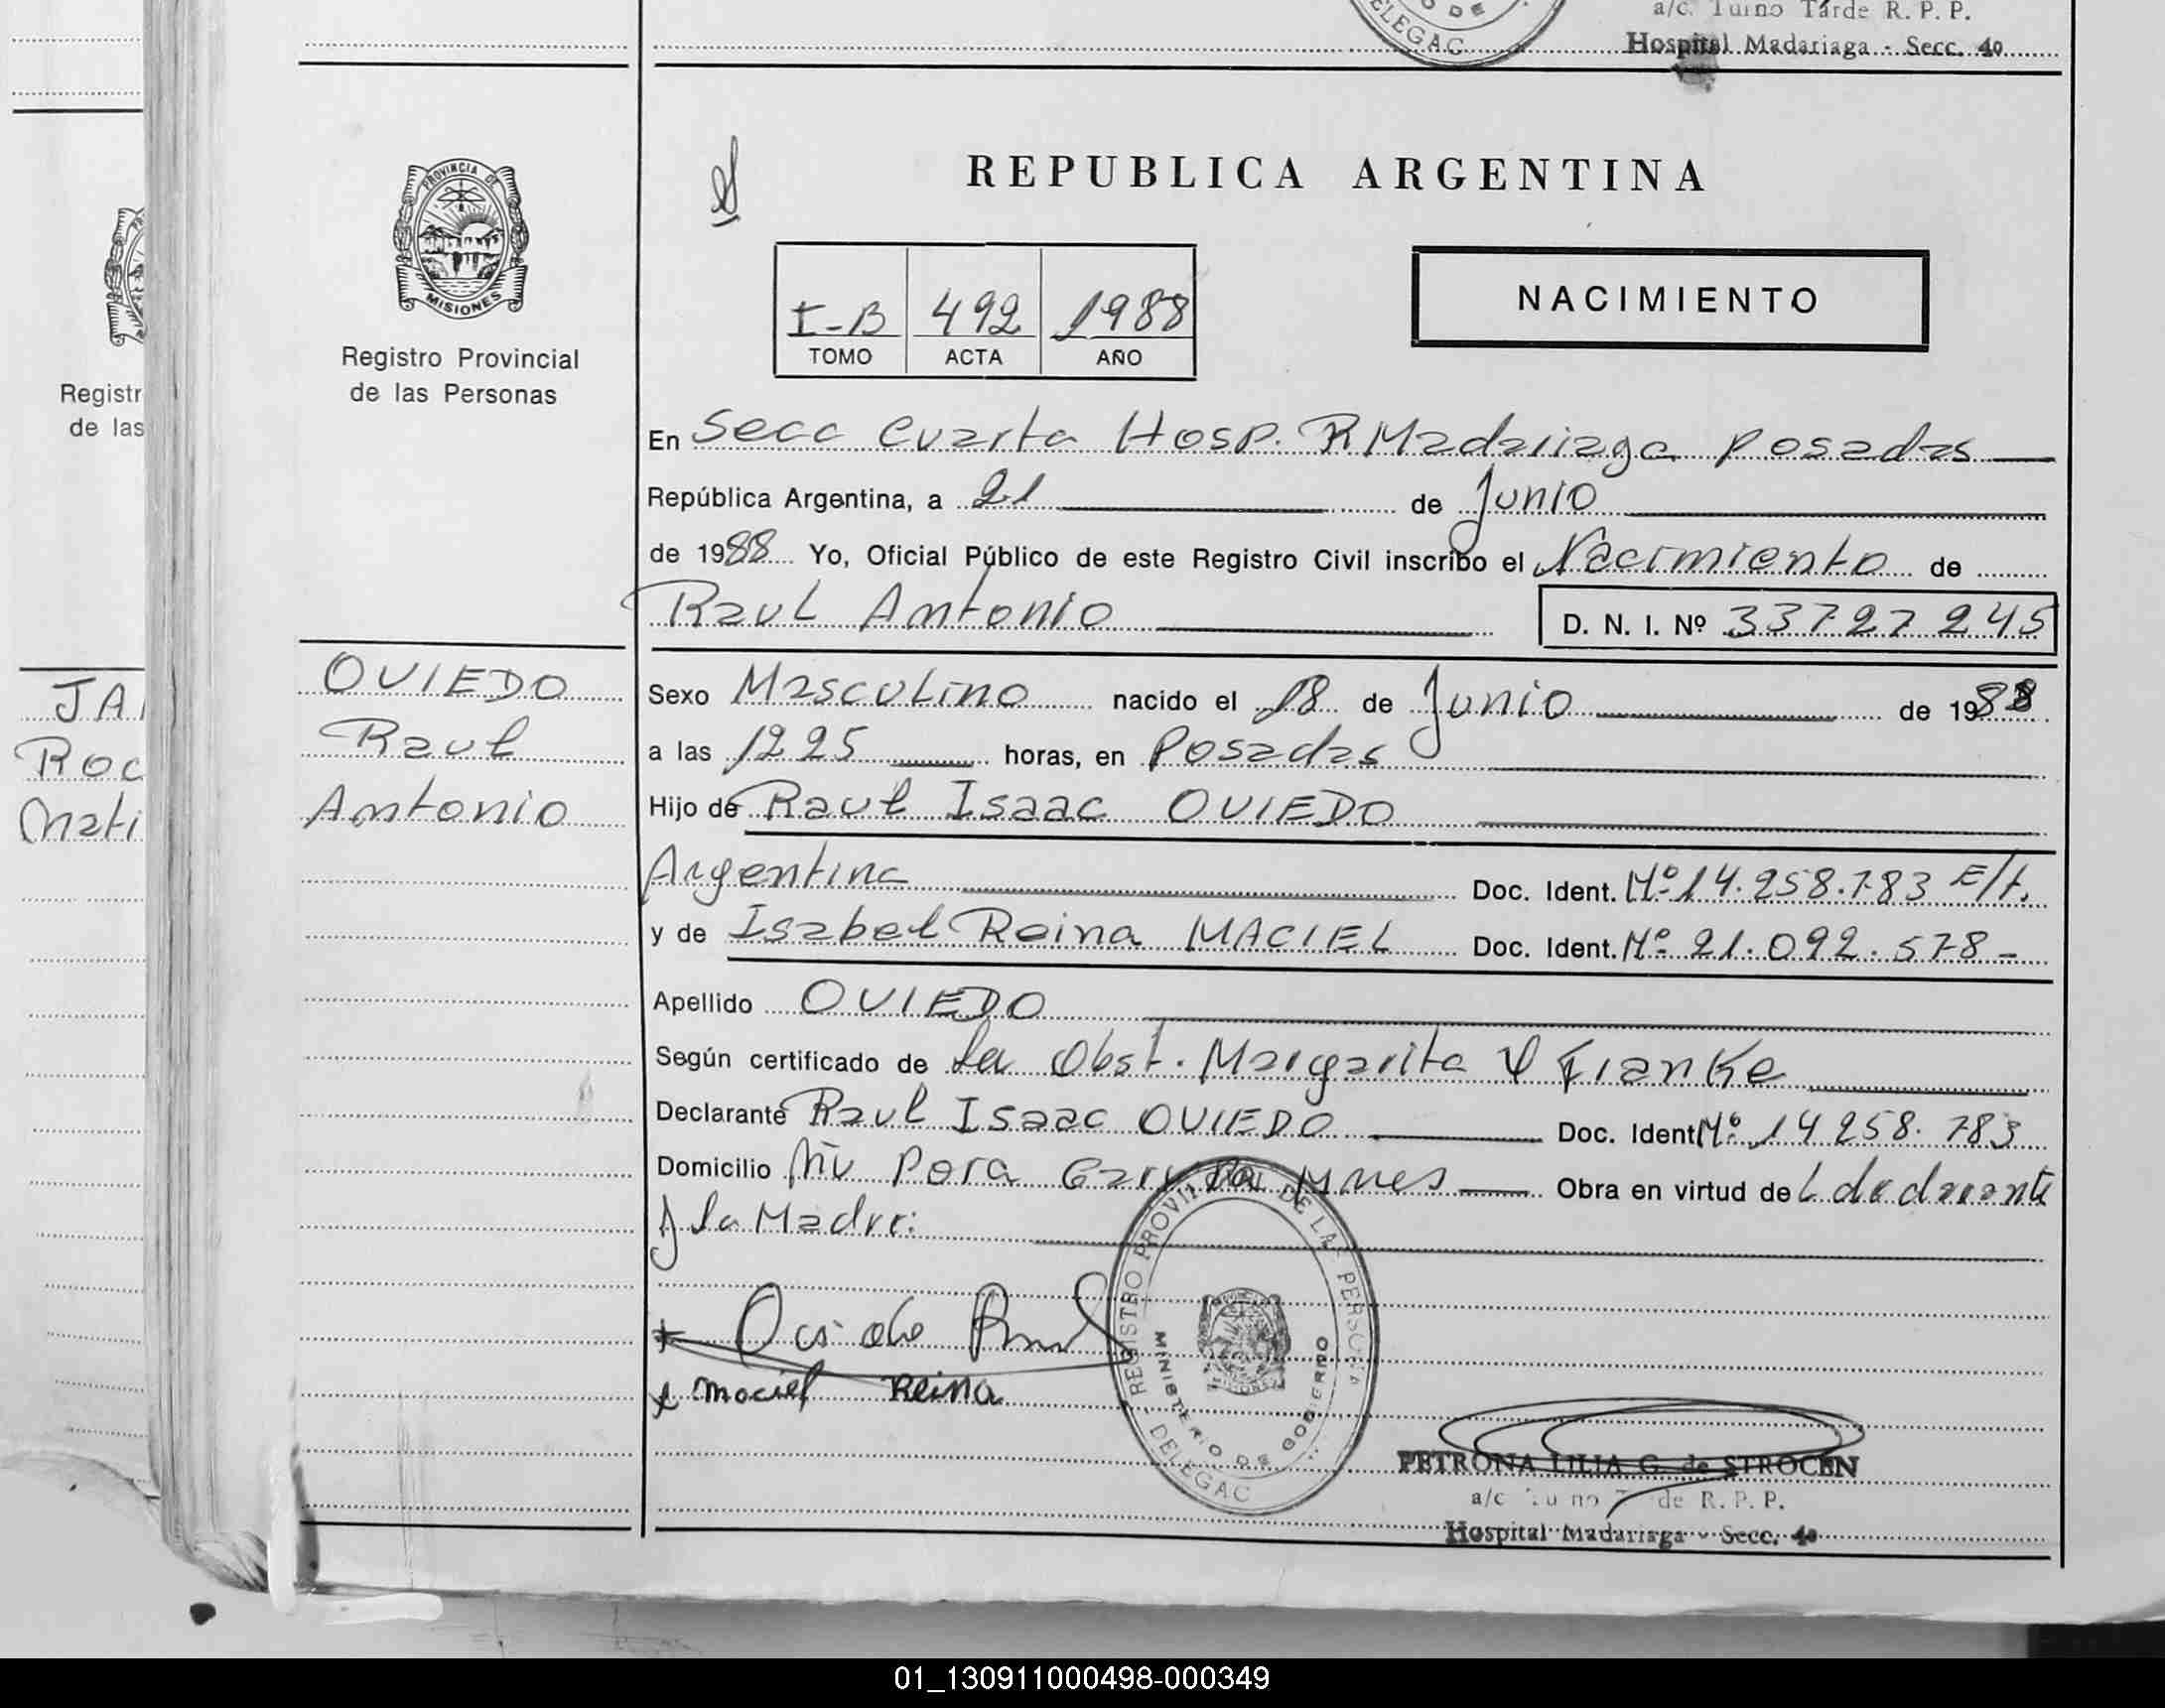 a/c. Turno Tarde R. P. P.
DELEGAC
Hospital Madariaga - Secc. 4a
PROVINCIA DE
MISIONES
Registro Provincial
de las Personas
REPUBLICA ARGENTINA
I-B 492 1988
TOMO ACTA AÑO
NACIMIENTO
Registr
de las
JA
Roc
Mati
OVIEDO
Raul
Antonio
En Secc Cuarta Hosp. R Madariaga Posadas
República Argentina, a 21 de Junio
de 1988 Yo, Oficial Público de este Registro Civil inscribo el Nacimiento de
Raul Antonio D. N. I. Nº 33727245
Sexo Masculino nacido el 18 de Junio de 1988
a las 1225 horas, en Posadas
Hijo de Raul Isaac OVIEDO
Argentina Doc. Ident. Nº 14.258.783 E/t.
y de Isabel Reina MACIEL Doc. Ident. Nº 21.092.578-
Apellido OVIEDO
Según certificado de La Obst. Margarita Franke
Declarante Raul Isaac OVIEDO Doc. Ident Nº 14 258.783
Domicilio Pora Mnes Obra en virtud de
y la Madre:
REGISTRO PROVINCIAL DE LAS PERSONAS
MINISTERIO DE GOBIERNO
DELEGAC
Maciel Reina
PETRONA LILIA G. de STROCEN
a/c Turno Tarde R. P. P.
Hospital Madariaga - Secc. 4a
01_130911000498-000349